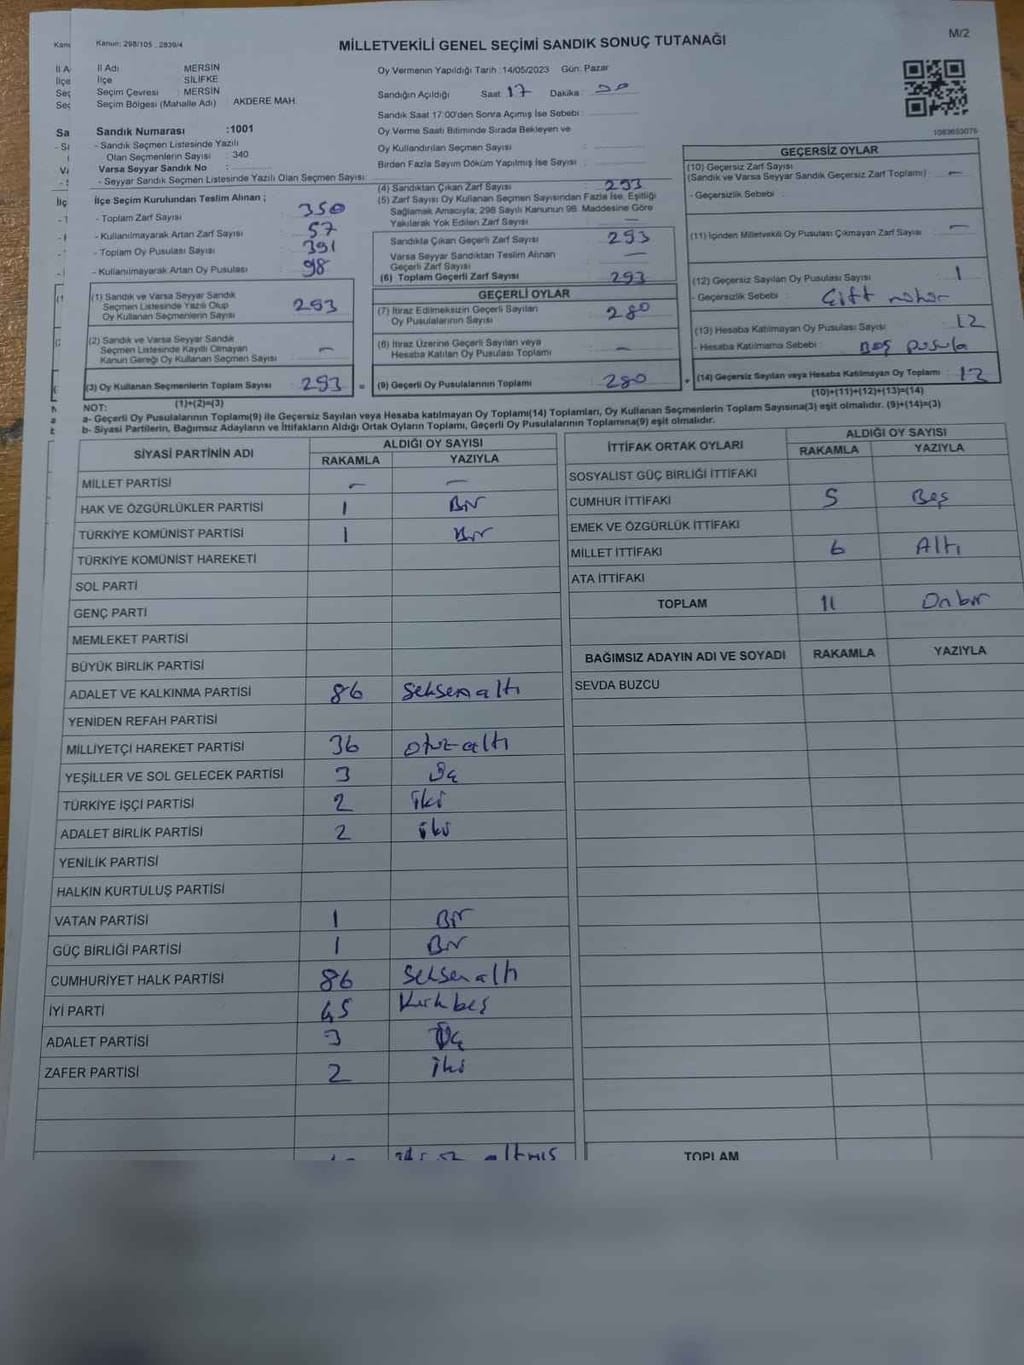 Kanun: 298/105 , 2839/4
MİLLETVEKİLİ GENEL SEÇİMİ SANDIK SONUÇ TUTANAĞI
M/2
İl Adı MERSİN
İlçe SİLİFKE
Seçim Çevresi : MERSİN
Seçim Bölgesi (Mahalle Adı) : AKDERE MAH.
Oy Vermenin Yapıldığı Tarih :14/05/2023 Gün: Pazar
Sandığın Açıldığı Saat 17 Dakika
Sandık Saat 17:00'den Sonra Açımış İse Sebebi :
Sandık Numarası :1001
- Sandık Seçmen Listesinde Yazılı
Olan Seçmenlerin Sayısı : 340
Varsa Seyyar Sandık No :
- Seyyar Sandık Seçmen Listesinde Yazılı Olan Seçmen Sayısı
Oy Verme Saati Bitiminde Sırada Bekleyen ve
Oy Kullandırılan Seçmen Sayısı :
Birden Fazla Sayım Döküm Yapılmış İse Sayısı :
1083653075
İlçe Seçim Kurulundan Teslim Alınan ;
- Toplam Zarf Sayısı 350
- Kullanılmayarak Artan Zarf Sayısı 57
- Toplam Oy Pusulası Sayısı 391
- Kullanılmayarak Artan Oy Pusulası 98
(1) Sandık ve Varsa Seyyar Sandık
Seçmen Listesinde Yazılı Olup
Oy Kullanan Seçmenlerin Sayısı 293
(2) Sandık ve Varsa Seyyar Sandık
Seçmen Listesinde Kayıtlı Olmayan
Kanun Gereği Oy Kullanan Seçmen Sayısı -
(3) Oy Kullanan Seçmenlerin Toplam Sayısı 293 =
(1)+(2)=(3)
(4) Sandıktan Çıkan Zarf Sayısı 293
(5) Zarf Sayısı Oy Kullanan Seçmen Sayısından Fazla İse, Eşitliği
Sağlamak Amacıyla, 298 Sayılı Kanunun 98. Maddesine Göre
Yakılarak Yok Edilen Zarf Sayısı -
Sandıkta Çıkan Geçerli Zarf Sayısı 293
Varsa Seyyar Sandıktan Teslim Alınan
Geçerli Zarf Sayısı -
(6) Toplam Geçerli Zarf Sayısı 293
GEÇERLİ OYLAR
(7) İtiraz Edilmeksizin Geçerli Sayılan
Oy Pusulalarının Sayısı 280
(8) İtiraz Üzerine Geçerli Sayılan veya
Hesaba Katılan Oy Pusulası Toplamı -
(9) Geçerli Oy Pusulalarının Toplamı 280 +
GEÇERSİZ OYLAR
(10) Geçersiz Zarf Sayısı
(Sandık ve Varsa Seyyar Sandık Geçersiz Zarf Toplamı) -
- Geçersizlik Sebebi :
(11) İçinden Milletvekili Oy Pusulası Çıkmayan Zarf Sayısı -
(12) Geçersiz Sayılan Oy Pusulası Sayısı 1
- Geçersizlik Sebebi : Çift mühür
(13) Hesaba Katılmayan Oy Pusulası Sayısı 12
- Hesaba Katılmama Sebebi : Boş pusula
(14) Geçersiz Sayılan veya Hesaba Katılmayan Oy Toplamı : 13
(10)+(11)+(12)+(13)=(14)
NOT:
a- Geçerli Oy Pusulalarının Toplamı(9) ile Geçersiz Sayılan veya Hesaba katılmayan Oy Toplamı(14) Toplamları, Oy Kullanan Seçmenlerin Toplam Sayısına(3) eşit olmalıdır. (9)+(14)=(3)
b- Siyasi Partilerin, Bağımsız Adayların ve İttifakların Aldığı Ortak Oyların Toplamı, Geçerli Oy Pusulalarının Toplamına(9) eşit olmalıdır.
SİYASİ PARTİNİN ADI ALDIĞI OY SAYISI
RAKAMLA YAZIYLA
MİLLET PARTİSİ - -
HAK VE ÖZGÜRLÜKLER PARTİSİ 1 Bir
TÜRKİYE KOMÜNİST PARTİSİ 1 Bir
TÜRKİYE KOMÜNİST HAREKETİ
SOL PARTİ
GENÇ PARTİ
MEMLEKET PARTİSİ
BÜYÜK BİRLİK PARTİSİ
ADALET VE KALKINMA PARTİSİ 86 Seksenaltı
YENİDEN REFAH PARTİSİ
MİLLİYETÇİ HAREKET PARTİSİ 36 otuzaltı
YEŞİLLER VE SOL GELECEK PARTİSİ 3 Üç
TÜRKİYE İŞÇİ PARTİSİ 2 iki
ADALET BİRLİK PARTİSİ 2 iki
YENİLİK PARTİSİ
HALKIN KURTULUŞ PARTİSİ
VATAN PARTİSİ 1 Bir
GÜÇ BİRLİĞİ PARTİSİ 1 Bir
CUMHURİYET HALK PARTİSİ 86 Seksenaltı
İYİ PARTİ 45 Kırkbeş
ADALET PARTİSİ 3 Üç
ZAFER PARTİSİ 2 iki
İTTİFAK ORTAK OYLARI ALDIĞI OY SAYISI
RAKAMLA YAZIYLA
SOSYALİST GÜÇ BİRLİĞİ İTTİFAKI
CUMHUR İTTİFAKI 5 Beş
EMEK VE ÖZGÜRLÜK İTTİFAKI
MİLLET İTTİFAKI 6 Altı
ATA İTTİFAKI
TOPLAM 11 Onbir
BAĞIMSIZ ADAYIN ADI VE SOYADI RAKAMLA YAZIYLA
SEVDA BUZCU
TOPLAM